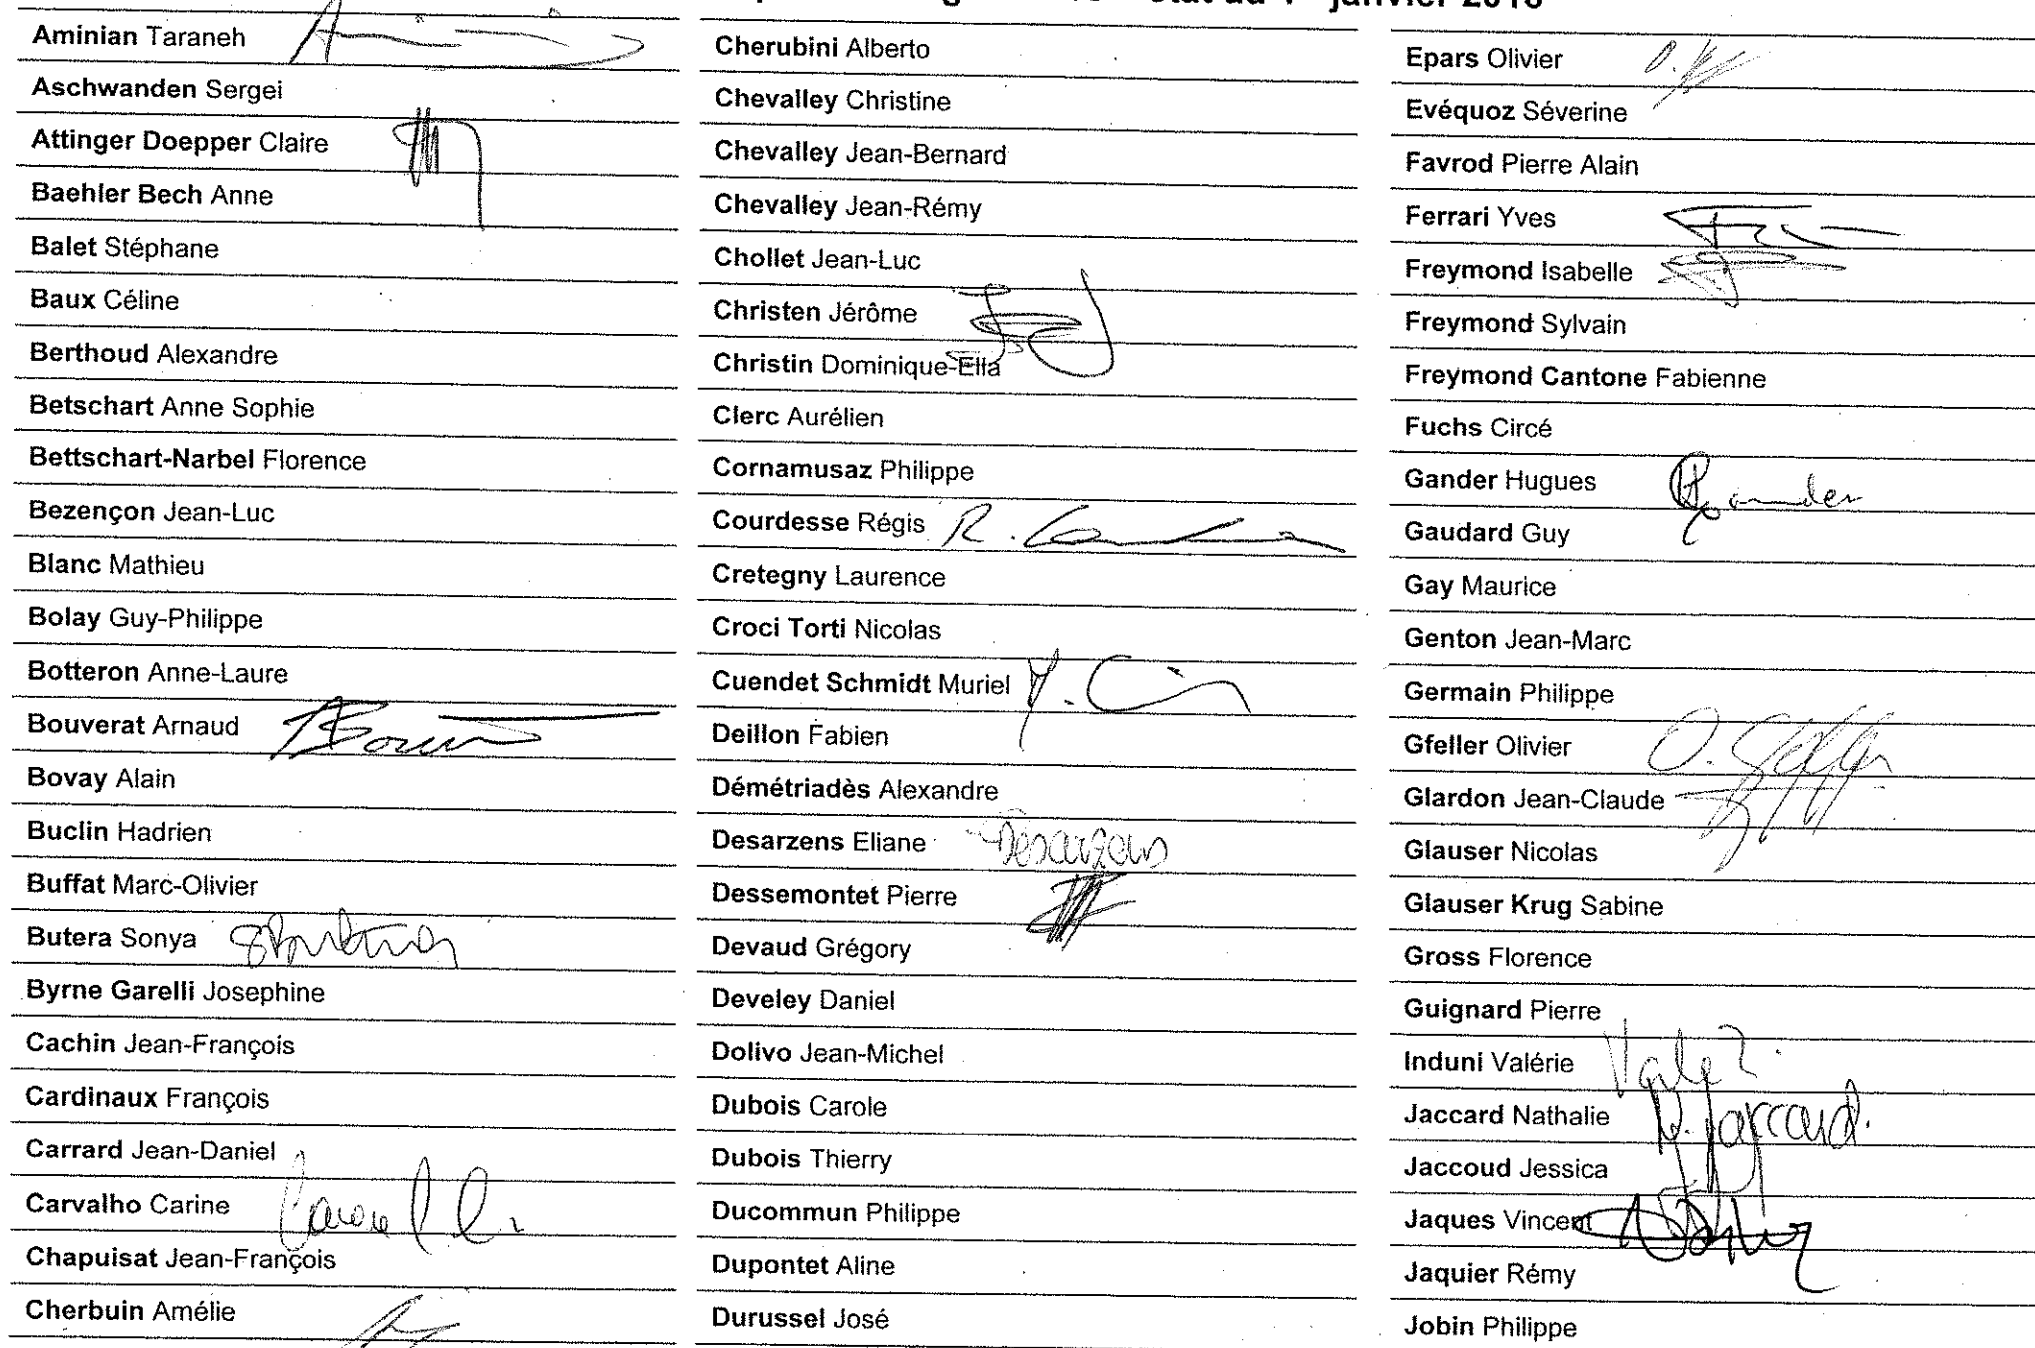 janvier 2018
Aminian Taraneh
Aschwanden Sergei
Attinger Doepper Claire
Baehler Bech Anne
Balet Stéphane
Baux Céline
Berthoud Alexandre
Betschart Anne Sophie
Bettschart-Narbel Florence
Bezençon Jean-Luc
Blanc Mathieu
Bolay Guy-Philippe
Botteron Anne-Laure
Bouverat Arnaud
Bovay Alain
Buclin Hadrien
Buffat Marc-Olivier
Butera Sonya
Byrne Garelli Josephine
Cachin Jean-François
Cardinaux François
Carrard Jean-Daniel
Carvalho Carine
Chapuisat Jean-François
Cherbuin Amélie
Cherubini Alberto
Chevalley Christine
Chevalley Jean-Bernard
Chevalley Jean-Rémy
Chollet Jean-Luc
Christen Jérôme
Christin Dominique-Ella
Clerc Aurélien
Cornamusaz Philippe
Courdesse Régis R.
Cretegny Laurence
Croci Torti Nicolas
Cuendet Schmidt Muriel
Deillon Fabien
Démétriadès Alexandre
Desarzens Eliane Desarzens
Dessemontet Pierre
Devaud Grégory
Develey Daniel
Dolivo Jean-Michel
Dubois Carole
Dubois Thierry
Ducommun Philippe
Dupontet Aline
Durussel José
Epars Olivier
Evéquoz Séverine
Favrod Pierre Alain
Ferrari Yves
Freymond Isabelle
Freymond Sylvain
Freymond Cantone Fabienne
Fuchs Circé
Gander Hugues
Gaudard Guy
Gay Maurice
Genton Jean-Marc
Germain Philippe
Gfeller Olivier O. Gfeller
Glardon Jean-Claude
Glauser Nicolas
Glauser Krug Sabine
Gross Florence
Guignard Pierre
Induni Valérie
Jaccard Nathalie N. Jaccard.
Jaccoud Jessica
Jaques Vincent
Jaquier Rémy
Jobin Philippe